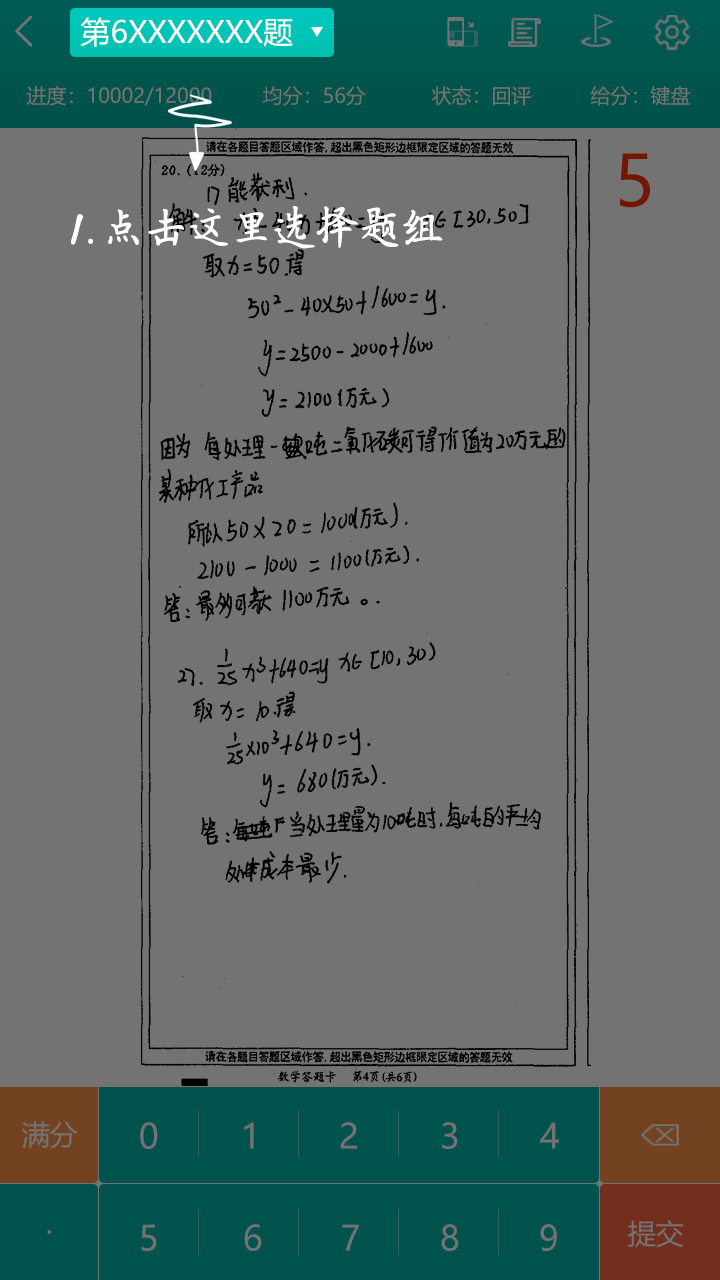 第6XXXXXXX题
进度：10002/12000 均分：56分 状态：回评 给分：键盘
请在各题目答题区域作答, 超出黑色矩形边框限定区域的答题无效
5
20.（12分）
1) 能获利.
1.点击这里选择题组
∈[30,50]
取x=50得
50²-40×50+1600=y.
y=2500-2000+1600
y=2100(万元)
因为 每处理一吨二氧化碳可得价值为20万元的
某种化工产品
所以50×20=1000(万元).
2100-1000=1100(万元).
答：最多可获1100万元。.
27. 1/25 x³+640=y x∈[10,30)
取x=10得
1/25×10³+640=y.
y=680(万元).
答： 当处理量为10吨时, 每吨的平均
成本最少.
请在各题目答题区域作答, 超出黑色矩形边框限定区域的答题无效
数学答题卡 第4页(共6页)
满分 0 1 2 3 4
. 5 6 7 8 9 提交